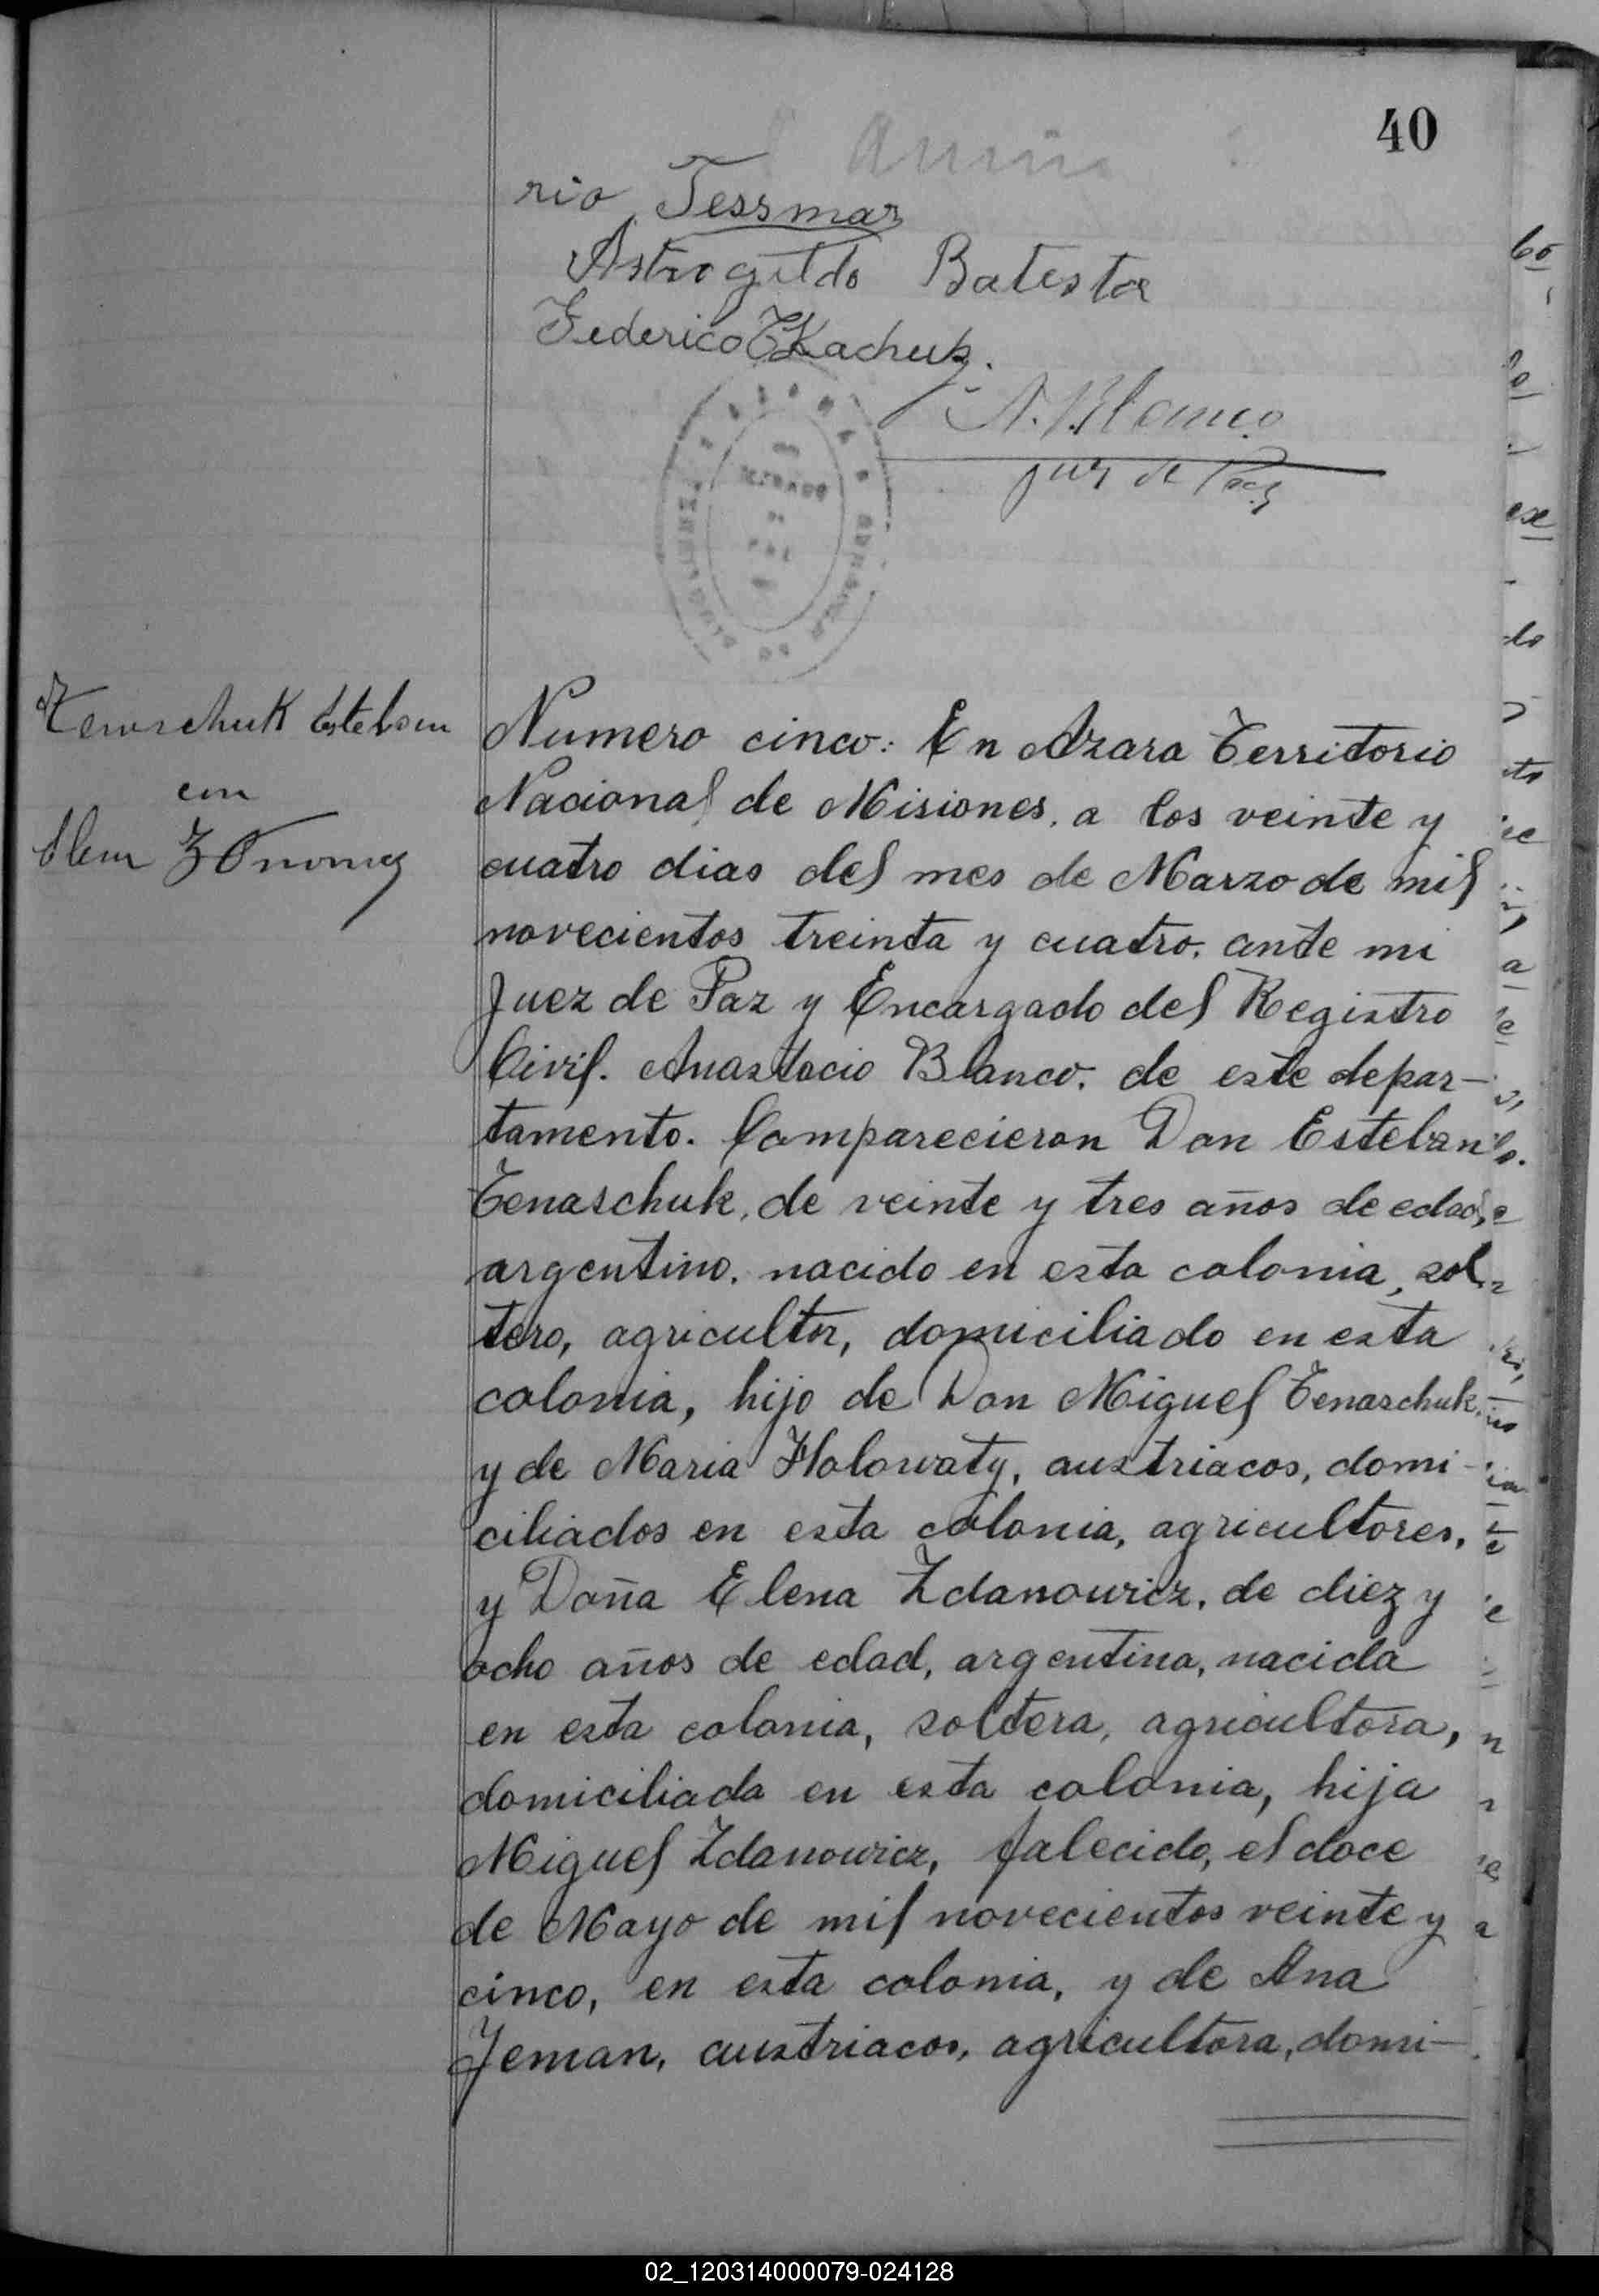 40
rio Tessmar
Astrogildo Batista
Federico TKachuk.
A. Blanco
juez de Paz
Tenaschuk Esteban
con
Elena
Numero cinco: En Azara Territorio
Nacional de Misiones, a los veinte y
cuatro dias del mes de Marzo de mil
novecientos treinta y cuatro, ante mi
Juez de Paz y Encargado del Registro
Civil. Anastacio Blanco, de este depar-
tamento. Comparecieron Don Esteban
Tenaschuk, de veinte y tres años de edad,
argentino, nacido en esta colonia, sol
tero, agricultor, domiciliado en esta
colonia, hijo de Don Miguel Tenaschuk
y de Maria Holowaty, austriacos, domi-
ciliados en esta colonia, agricultores,
y Doña Elena Zdanowicz, de diez y
ocho años de edad, argentina, nacida
en esta colonia, soltera, agricultora,
domiciliada en esta colonia, hija
Miguel Zdanowicz, falecido, el doce
de Mayo de mil novecientos veinte y
cinco, en esta colonia, y de Ana
Jeman, austriacos, agricultora, domi-
02_120314000079-024128